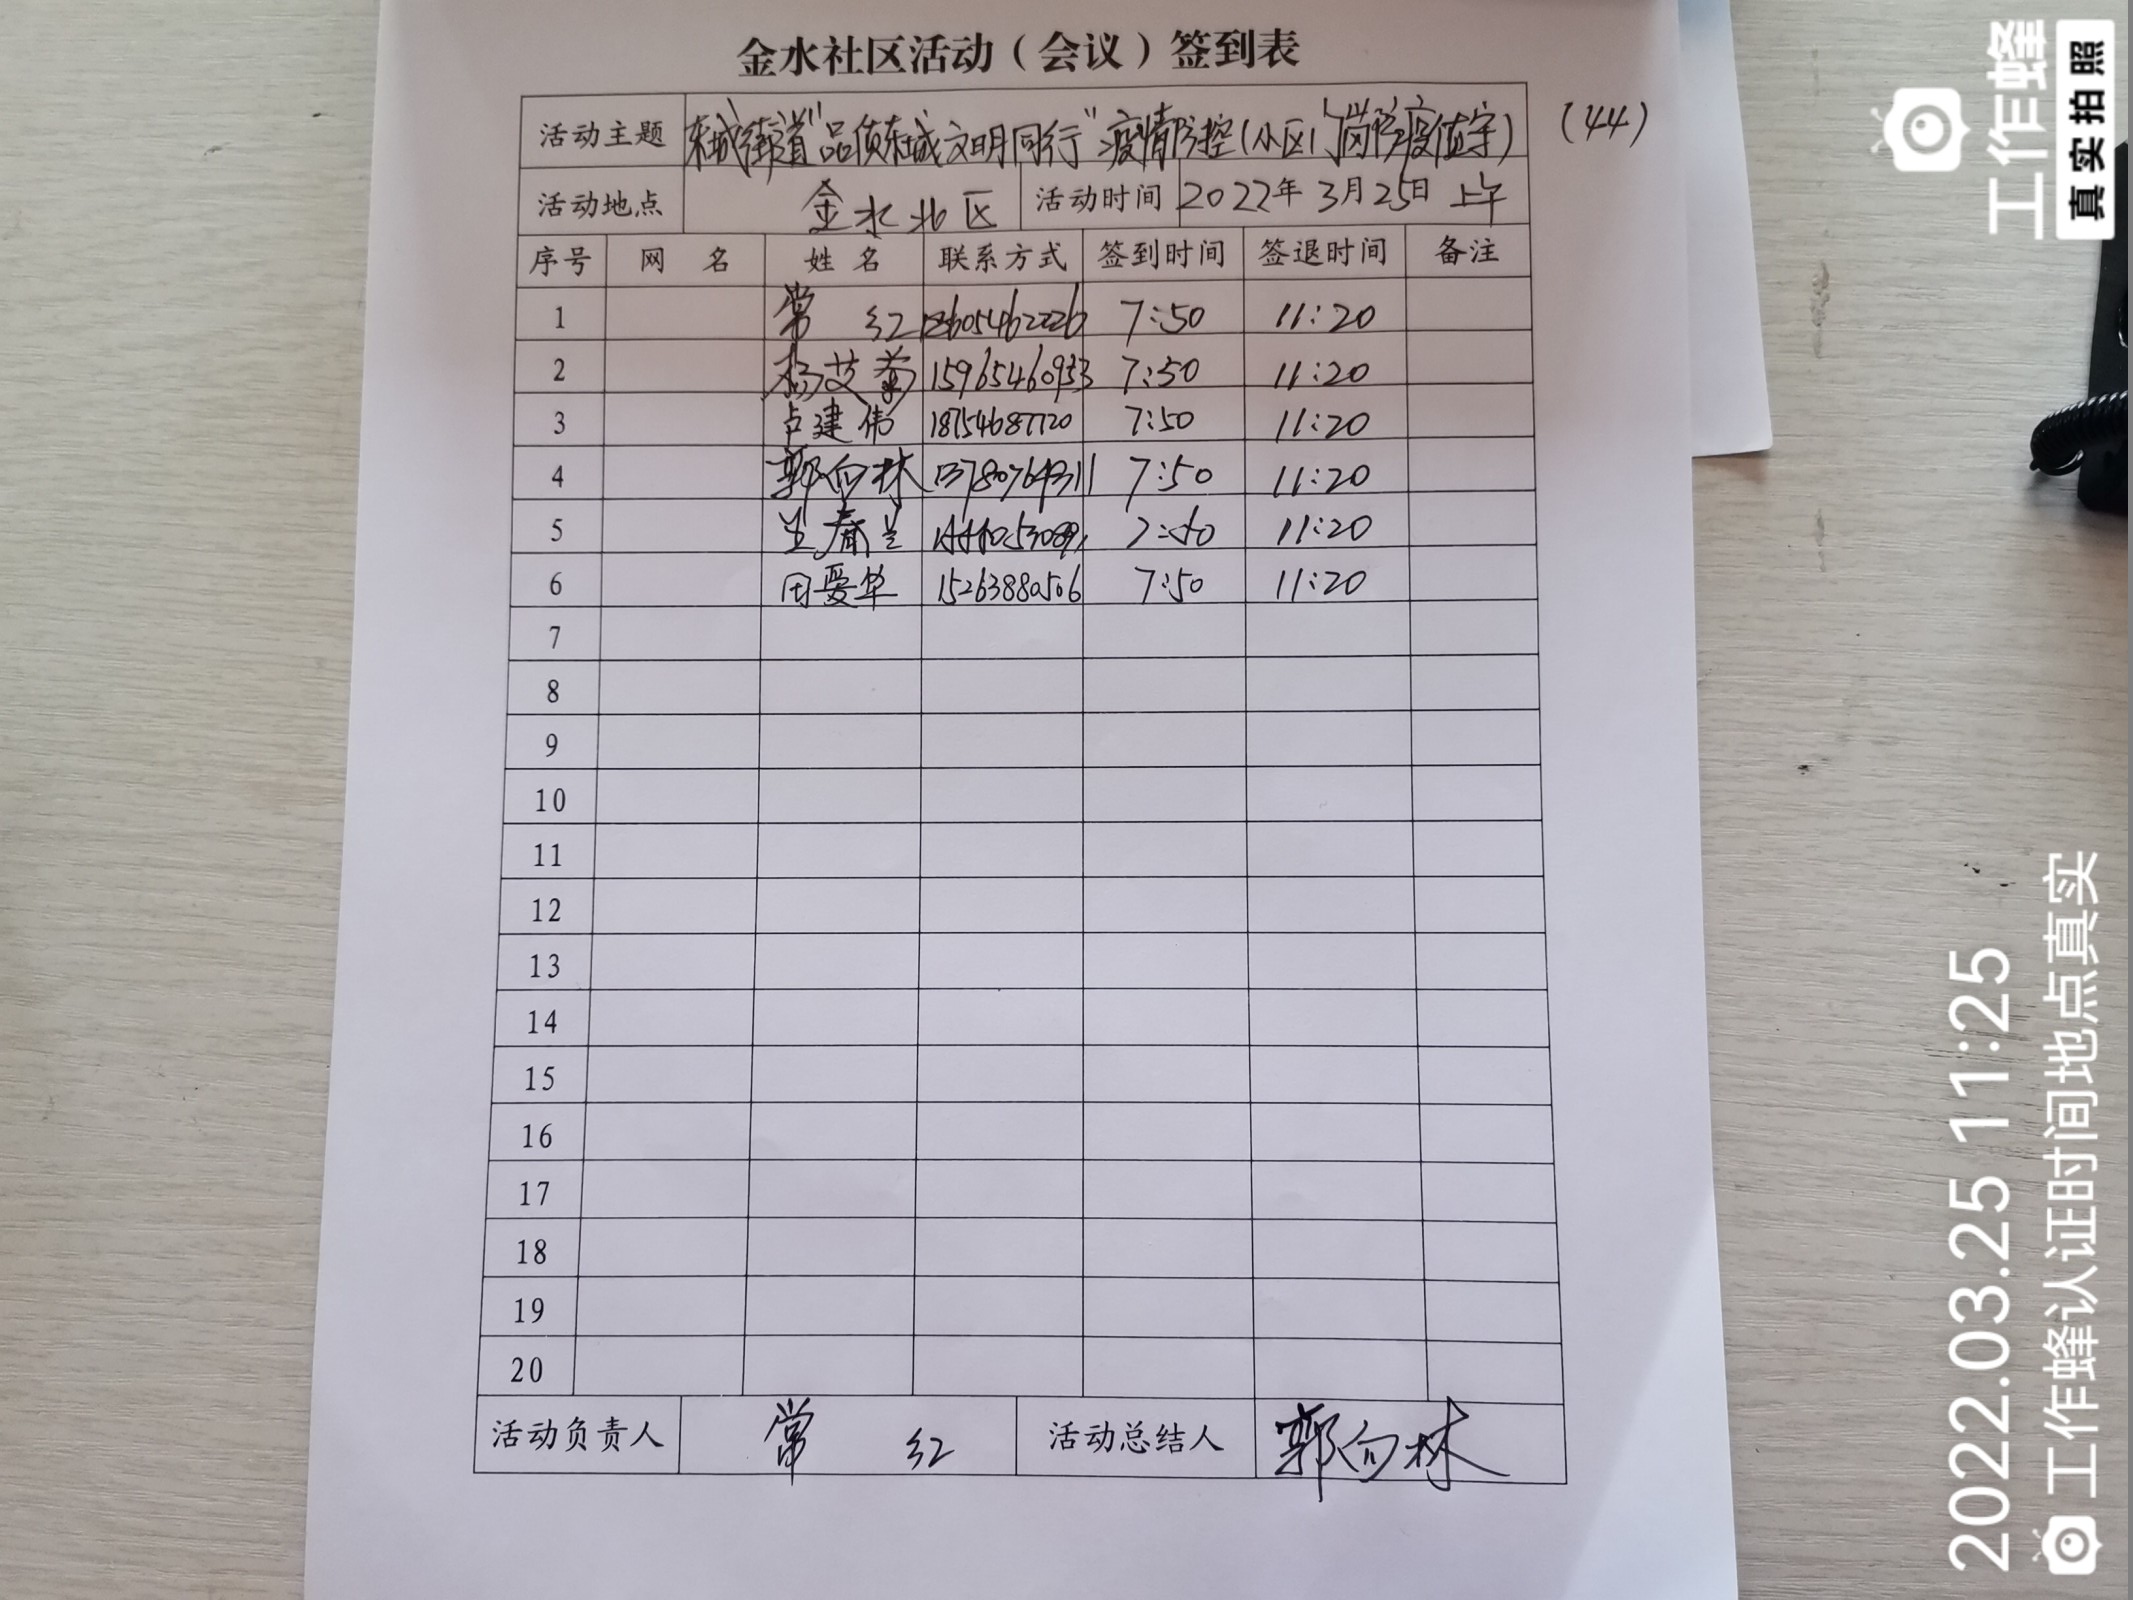 金水社区活动（会议）签到表
活动主题 东城街道"品质东城文明同行"疫情防控(小区门岗防疫值守) (44)
活动地点 金水北区 活动时间 2022年3月25日 上午
序号 网 名 姓 名 联系方式 签到时间 签退时间 备注
1 常 红 18605462226 7:50 11:20
2 杨艾菊 15965460933 7:50 11:20
3 卢建伟 18754687720 7:50 11:20
4 郭向林 13780764311 7:50 11:20
5 春兰 7:50 11:20
6 田爱华 15263880506 7:50 11:20
7
8
9
10
11
12
13
14
15
16
17
18
19
20
活动负责人 常 红 活动总结人 郭向林
工作蜂 真实拍照
2022.03.25 11:25
工作蜂认证时间地点真实